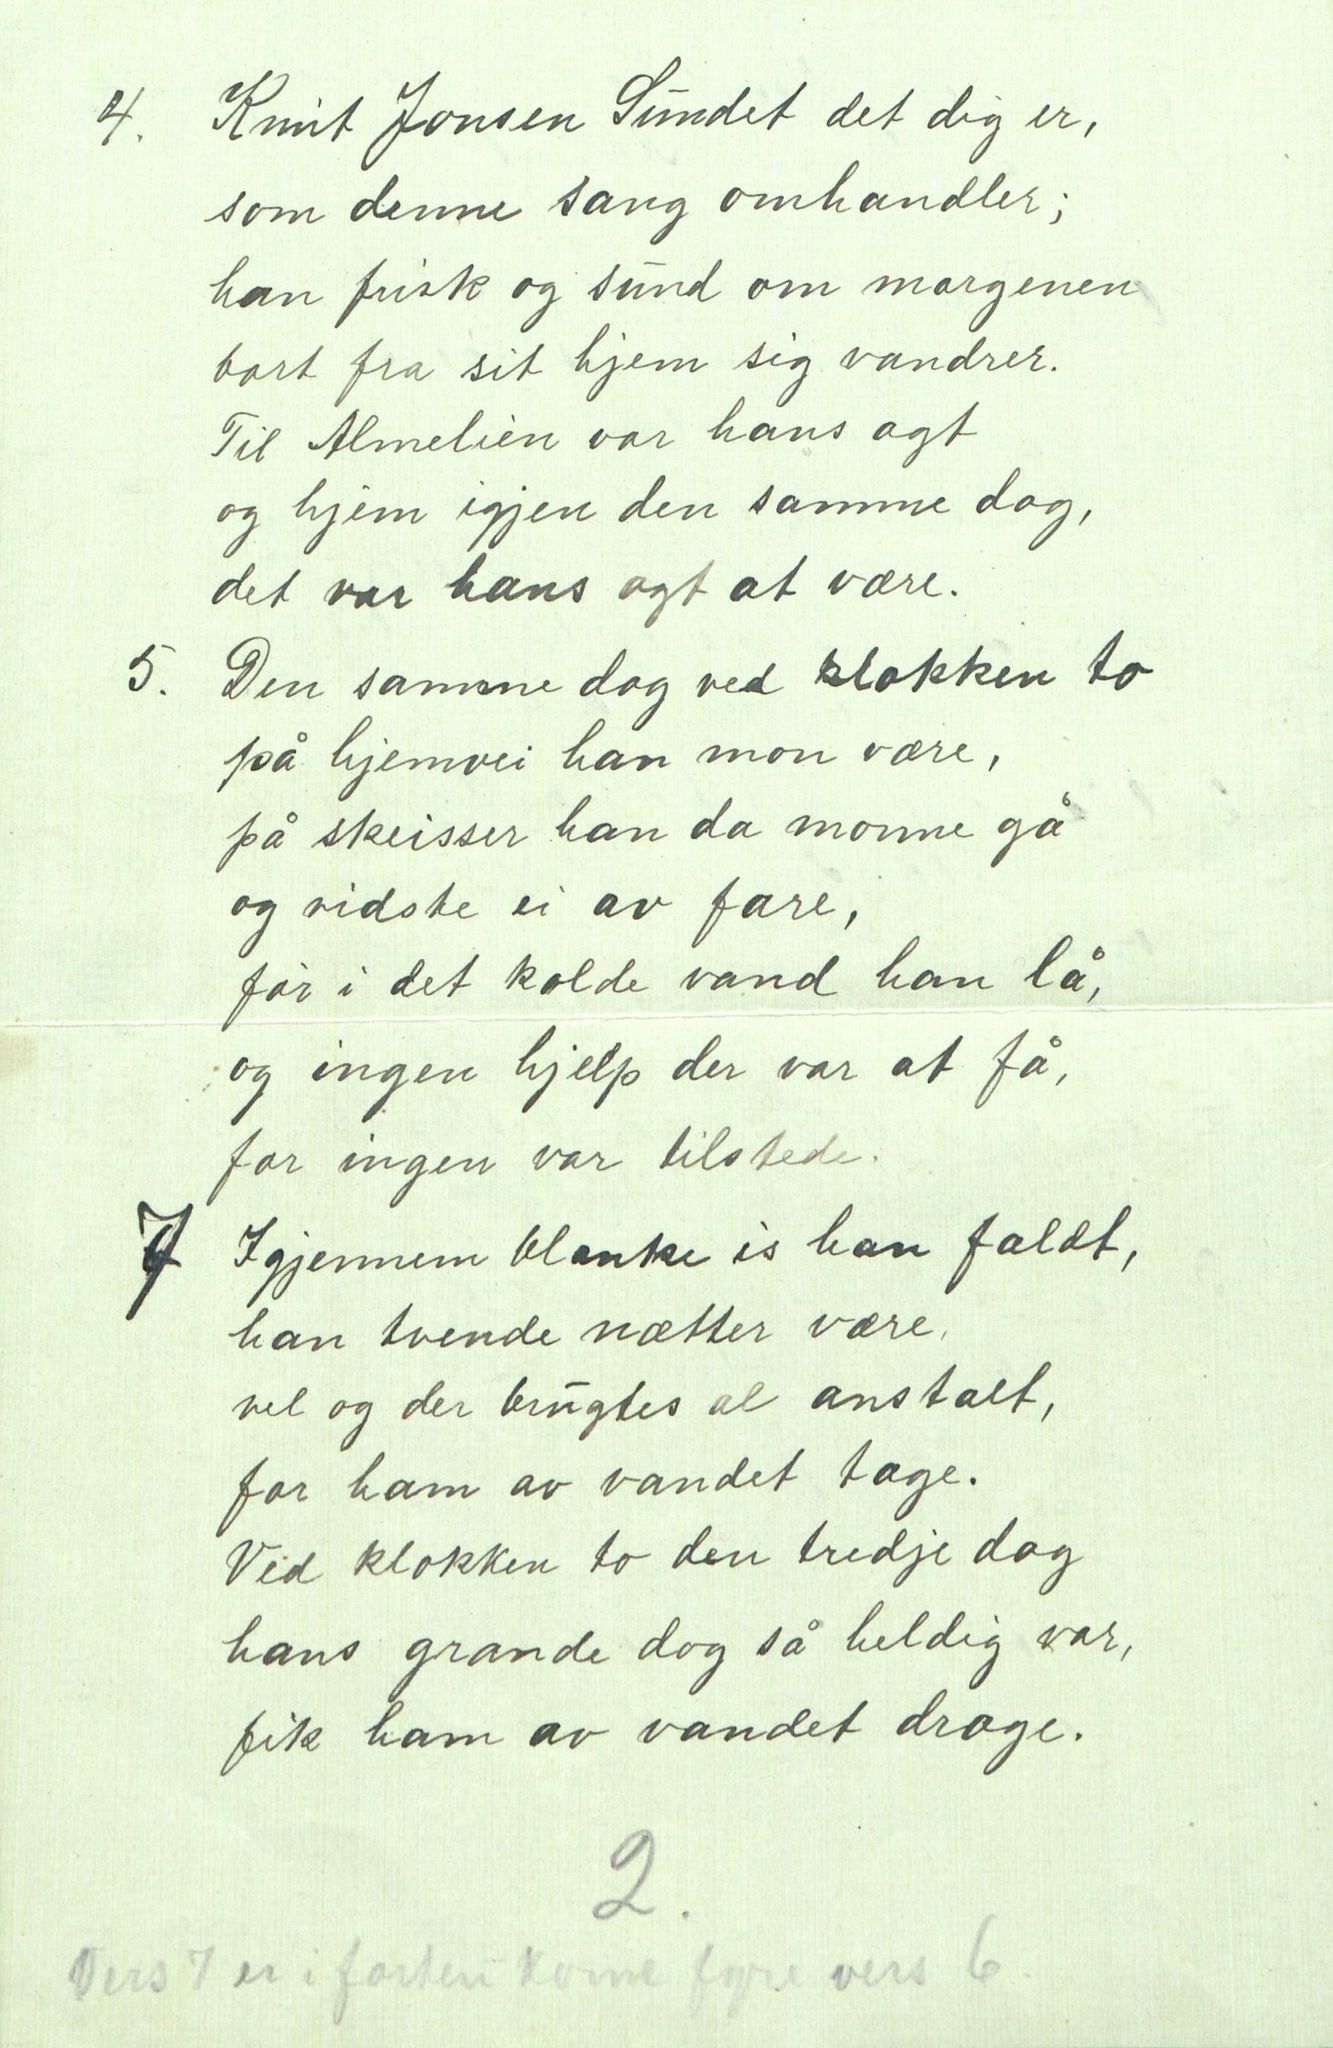 4. Knut Jonsen Sundet det dig er,
som denne sang omhandler;
han frisk og sund om morgenen
bort fra sit hjem sig vandrer.
Til Almelien var hans agt
og hjem igjen den samme dag,
det var hans agt at være.
5. Den samme dag ved klokken to
på hjemvei han mon være,
på skeisser han da monne gå
og vidste ei av fare,
før i det kolde vand han lå,
og ingen hjelp der var at få,
for ingen var tilstede.
7 Igjennem blanke is han faldt,
han tvende nætter være,
vel og der brugtes al anstalt,
for ham av vandet tage.
Ved klokken to den tredje dag
hans grande dog så heldig var,
fik ham av vandet drage.
2.
Vers 7 er i farten kome fyre vers 6